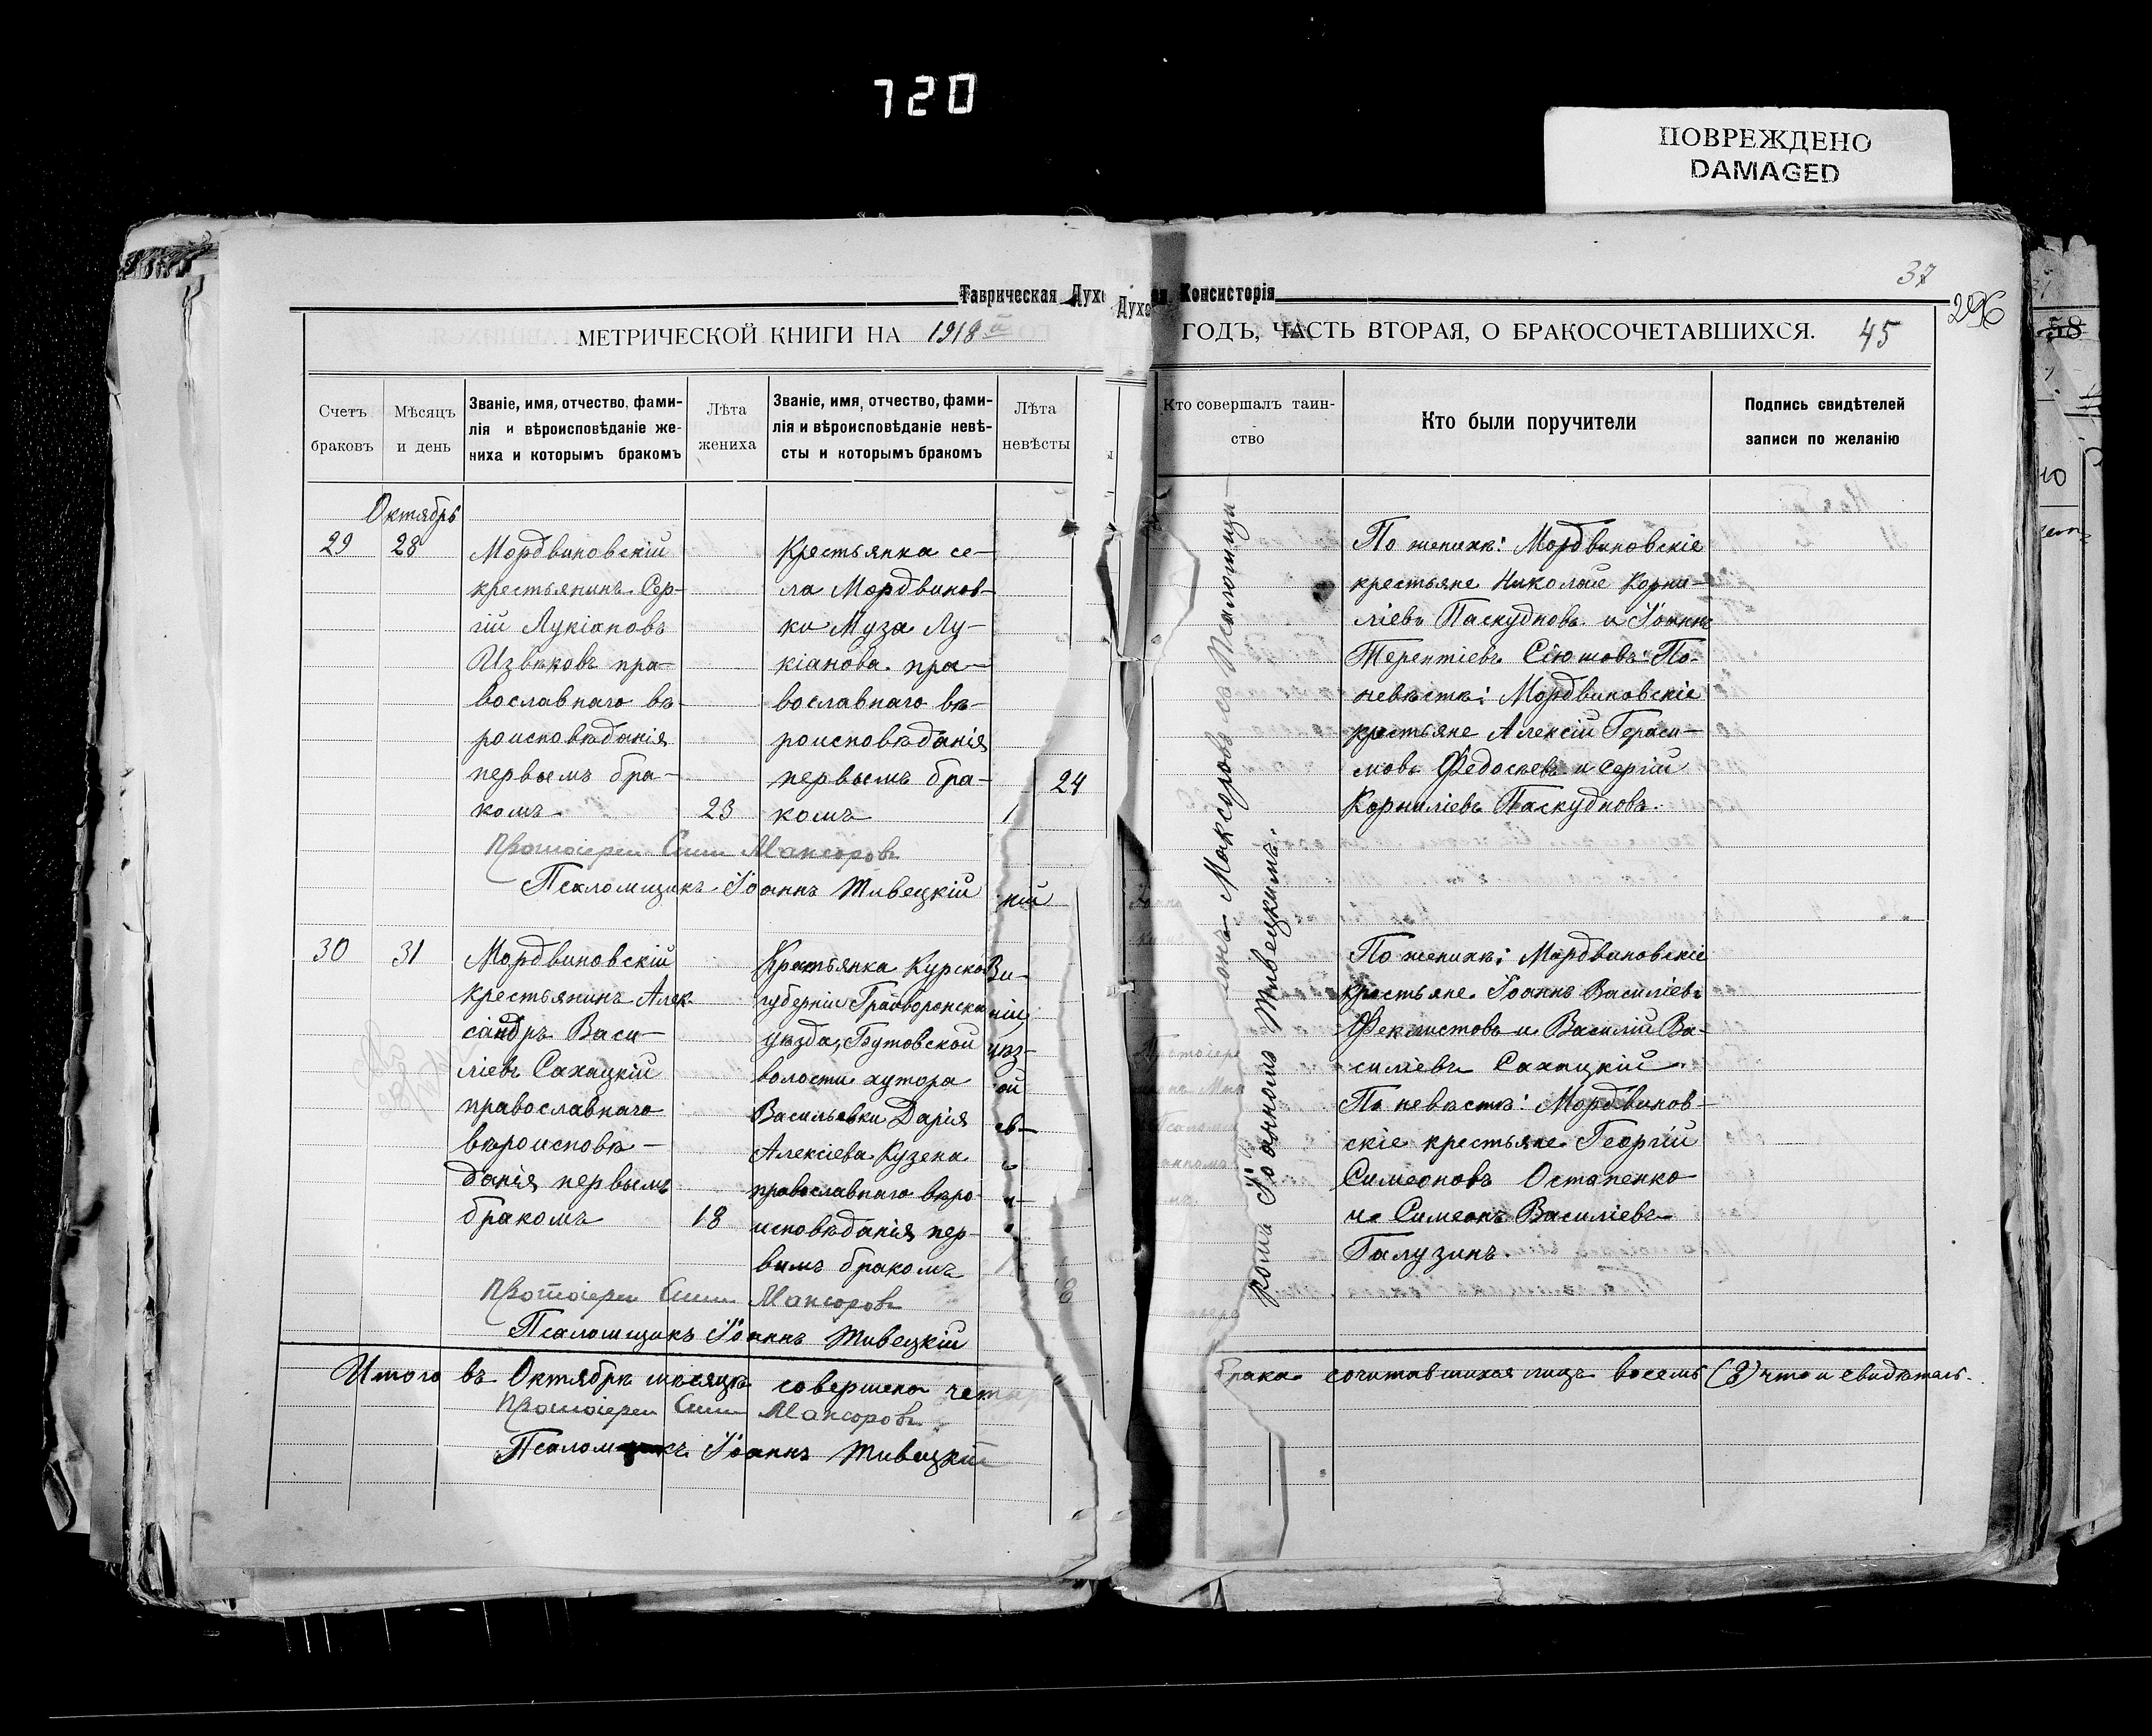 720
ПОВРЕЖДЕНО
DAMAGED
37
Таврическая Духо Духо Консисторія
296
58
МЕТРИЧЕСКОЙ КНИГИ НА 1918й ГОДЪ, ЧАСТЬ ВТОРАЯ, О БРАКОСОЧЕТАВШИХСЯ. 45
Счетъ браковъ
Мѣсяцъ и день
Званіе, имя, отчество, фами-
лія и вѣроисповѣданіе же-
ниха и которымъ бракомъ
Лѣта жениха
Званіе, имя, отчество, фами-
лія и вѣроисповѣданіе невѣ-
сты и которымъ бракомъ
Лѣта невѣсты
Кто совершалъ таин-
ство
Кто были поручители
Подпись свидѣтелей
записи по желанію
Октябрь
29
28
Мордвиновскій
крестьянинъ Сер-
гій Лукіановъ
Извѣковъ пра-
вославнаго вѣ-
роисповѣданія
первымъ бра-
комъ
23
Крестьянка се-
ла Мордвинов-
ки Муза Лу-
кіанова пра-
вославнаго вѣ-
роисповѣданія
первымъ бра-
комъ
24
Протоіерей Мансоровъ
Псаломщикъ Іоаннъ Тивецкій
По женихѣ: Мордвиновскіе
крестьяне Николай Корни-
ліевъ Паскудновъ и Іоаннъ
Терентіевъ Сіюшовъ. По
невѣстѣ: Мордвиновскіе
крестьяне Алексій Гераси-
мовъ Федосѣевъ и Сергій
Корниліевъ Паскудновъ.
30
31
Мордвиновскій
крестьянинъ Алек-
сандръ Васи-
ліевъ Сахацкій
православнаго
вѣроисповѣ-
данія первымъ
бракомъ
18
Крестьянка Курской
губерніи Грайворонска
уѣзда, Бутовской
волости хутора
Васильевки Дарія
Алексіева Кузена
православнаго вѣро-
исповѣданія пер-
вымъ бракомъ
Протоіерей Мансоровъ
Псаломщикъ Іоаннъ Тивецкій
ромъ Іоанномъ Тивецкимъ.
По женихѣ: Мордвиновскіе
крестьяне Іоаннъ Василіевъ
Феклистовъ и Василій Ва-
силіевъ Сахацкій.
По невѣстѣ: Мордвинов-
скіе крестьяне Георгій
Симеоновъ Остапенко
и Симеонъ Василіевъ
Галузинъ.
Итого въ Октябрѣ мѣсяцѣ совершено четыр
брака сочитавшихся лицъ восемь (8) что и свидѣтель-
Протоіерей Мансоровъ
Іоаннъ Тивецкій